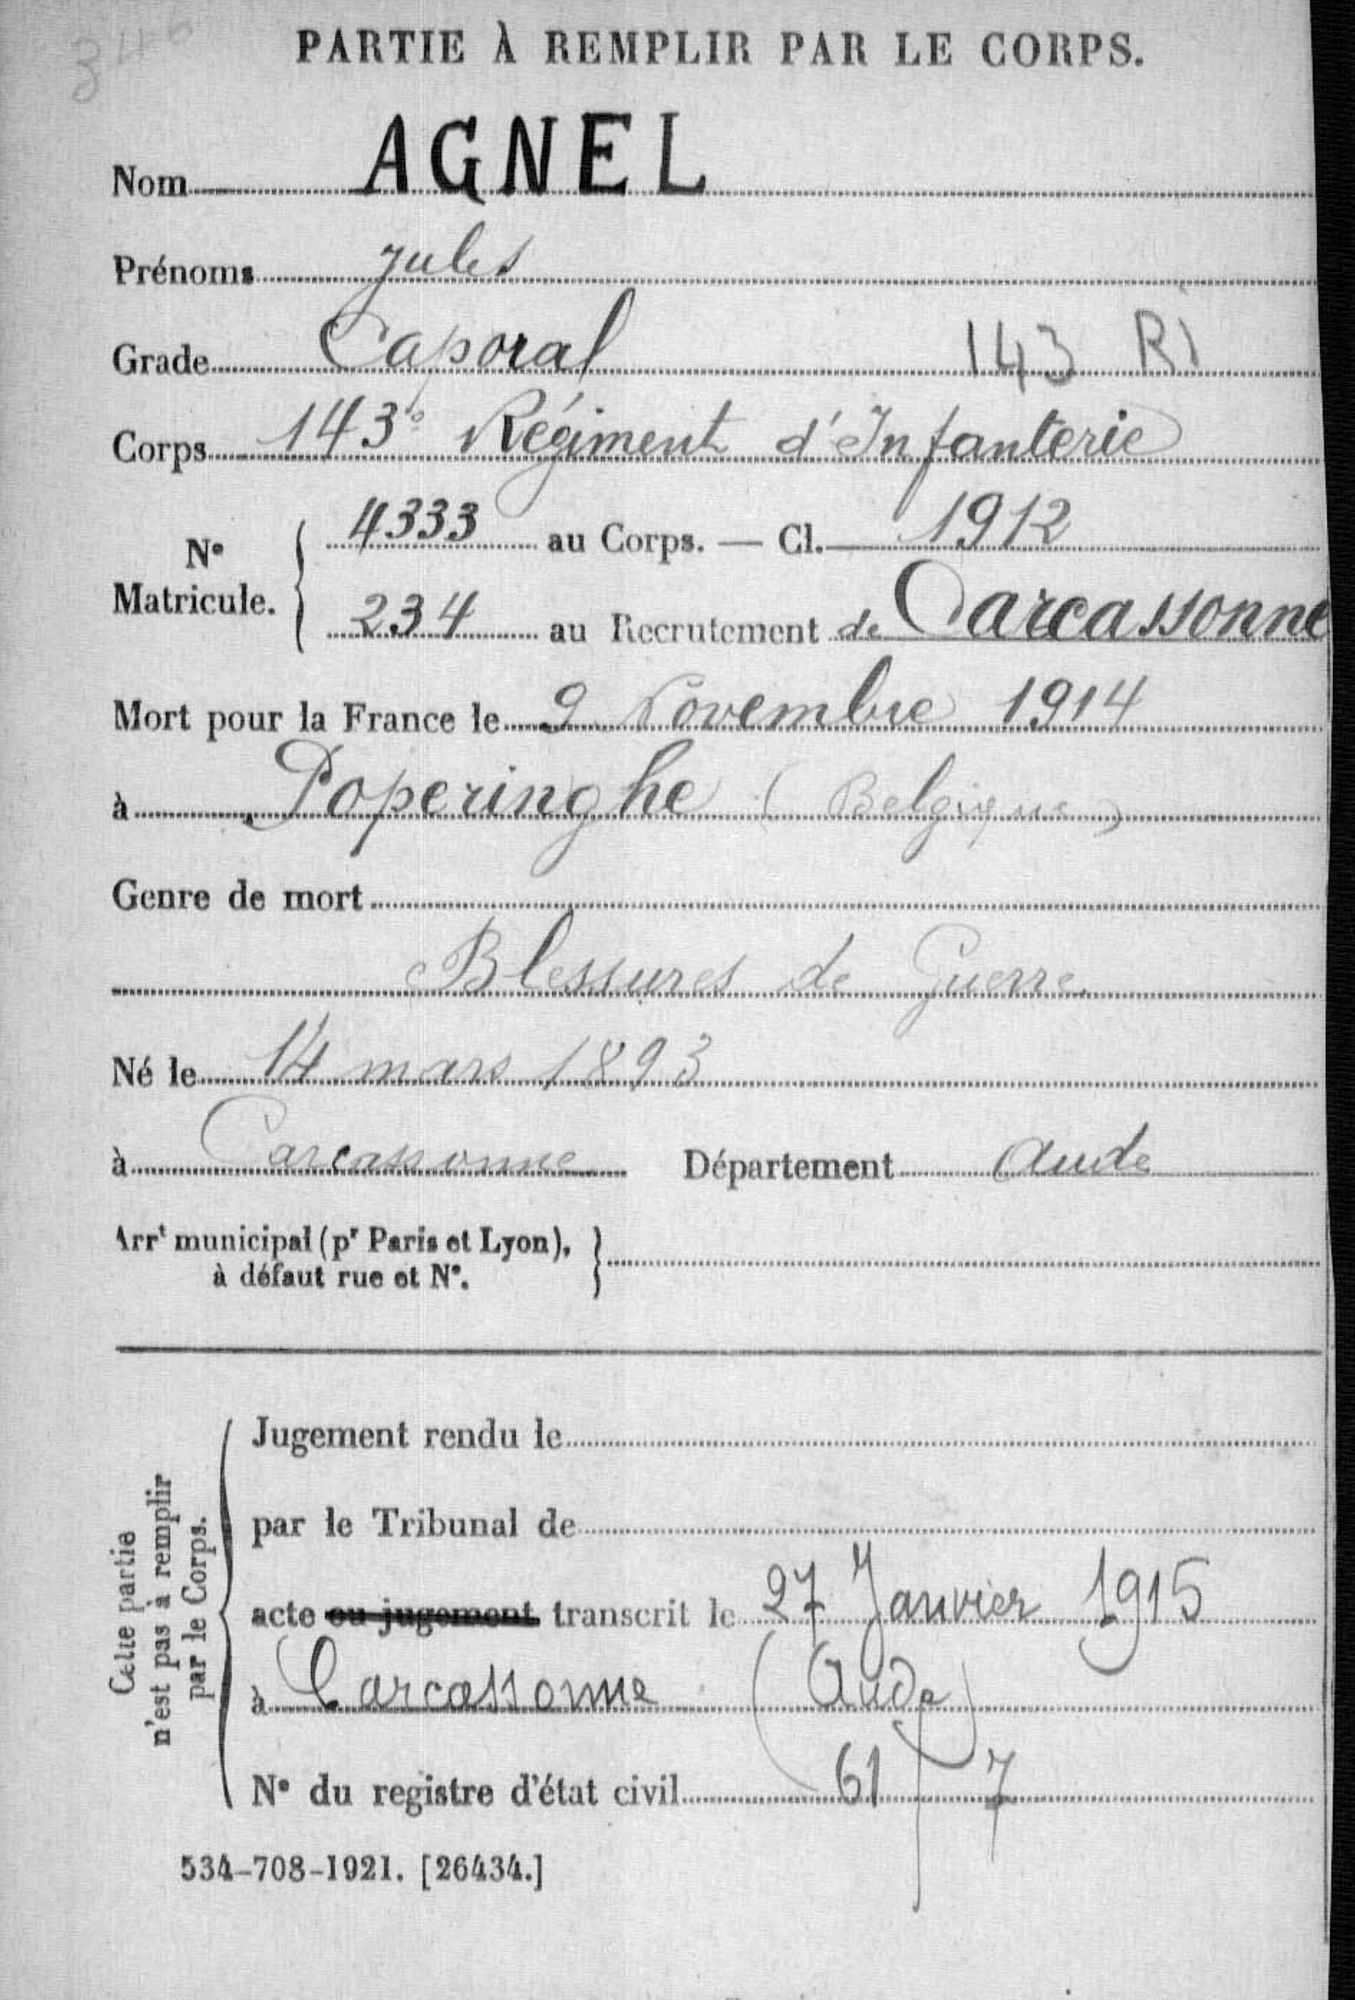 346
PARTIE À REMPLIR PAR LE CORPS.
Nom AGNEL
Prénoms Jules
Grade Caporal 143 RI
Corps 143e Régiment d'Infanterie
No Matricule. { 4333 au Corps. — Cl. 1912
234 au Recrutement de Carcassonne
Mort pour la France le 9 Novembre 1914
à Poperinghe (Belgique)
Genre de mort
Blessures de Guerre
Né le 14 mars 1893
à Carcassonne Département Aude
Arrt municipal (pr Paris et Lyon), }
à défaut rue et No.
Cette partie
n'est pas à remplir
par le Corps.
Jugement rendu le
par le Tribunal de
acte ou jugement transcrit le 27 Janvier 1915
à Carcassonne (Aude)
No du registre d'état civil 61/7
534-708-1921. [26434.]